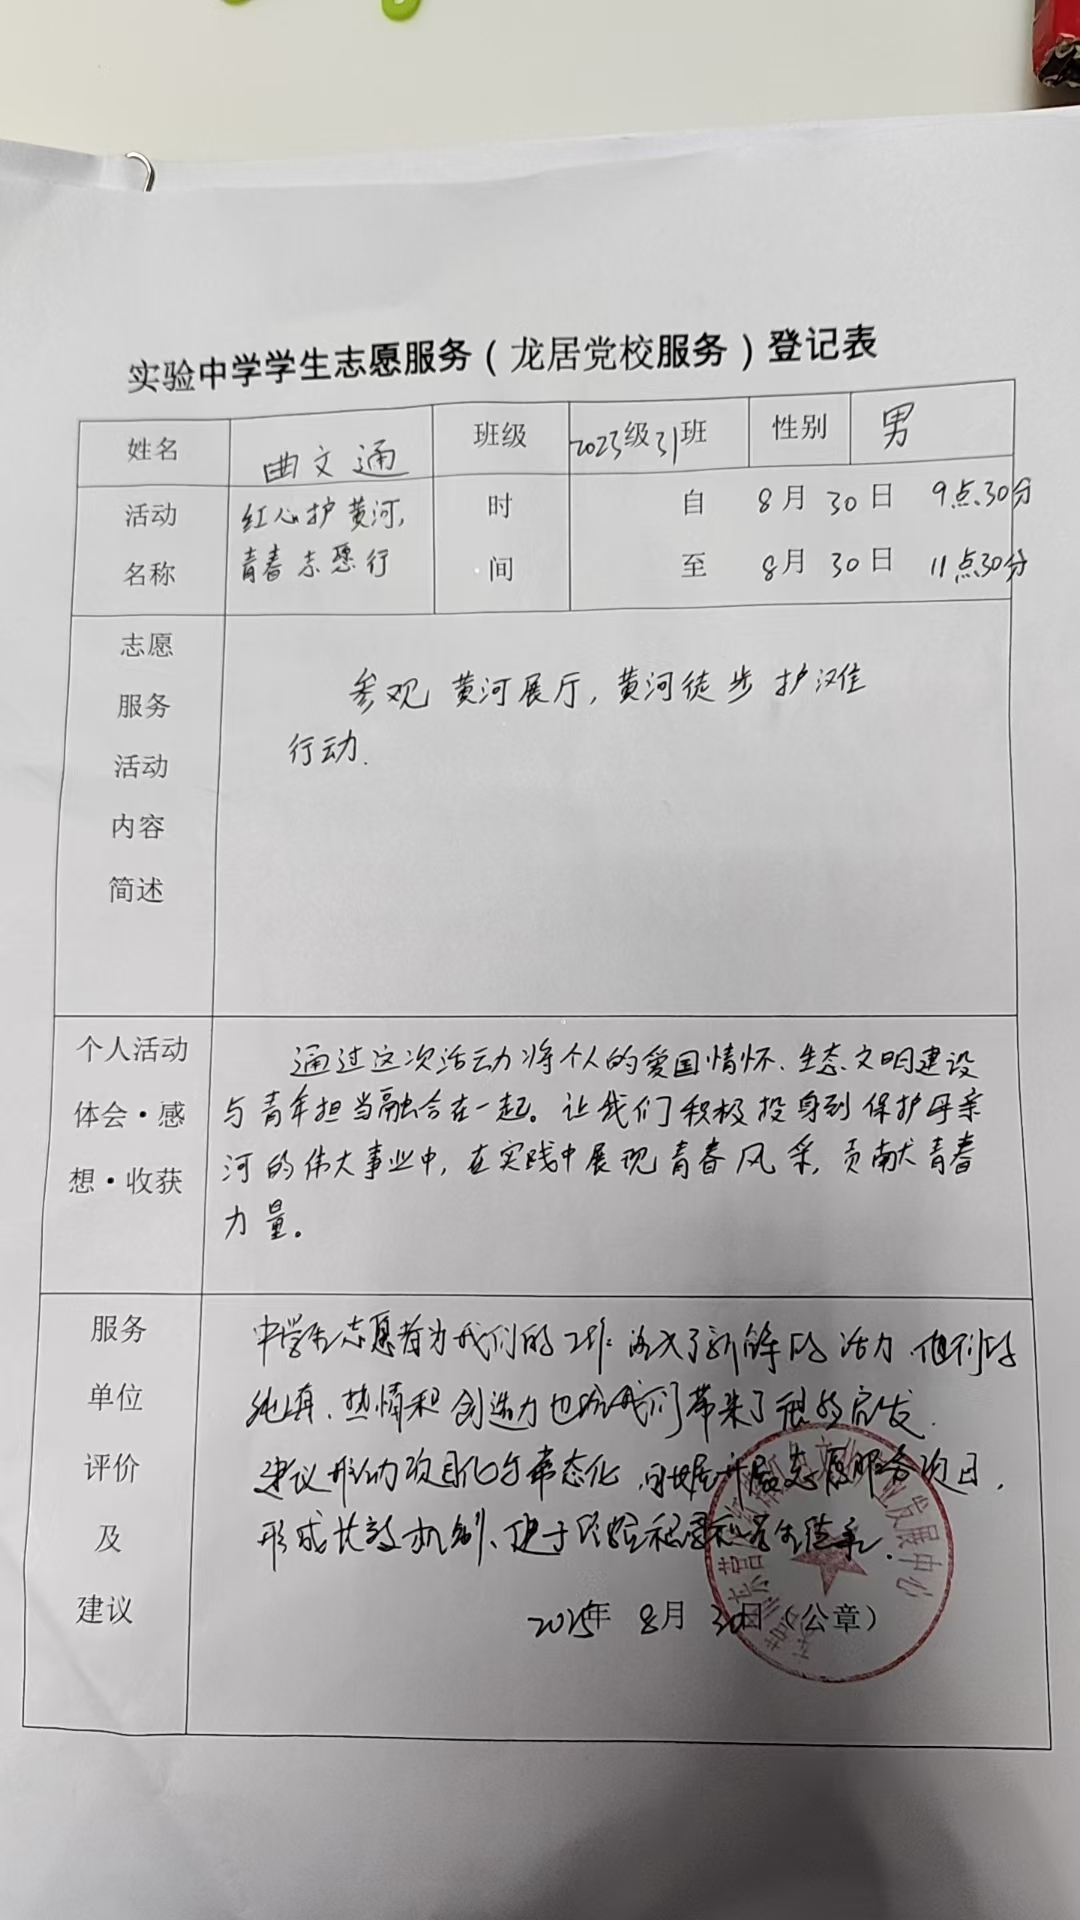 实验中学学生志愿服务（龙居党校服务）登记表
姓名 曲文通 班级 2023级31班 性别 男
活动 红心护黄河, 时 自 8月30日 9点30分
名称 青春志愿行 间 至 8月30日 11点30分
志愿
服务
活动
内容
简述
参观黄河展厅,黄河徒步护滩
行动.
个人活动
体会·感
想·收获
通过这次活动将个人的爱国情怀、生态文明建设
与青年担当融合在一起。让我们积极投身到保护母亲
河的伟大事业中,在实践中展现青春风采,贡献青春
力量。
服务
单位
评价
及
建议
中学生志愿者为我们的工作注入了新鲜的活力,他们的
纯真、热情和创造力也给我们带来了很多启发.
建议形成项目化与常态化,开展志愿服务项目,
形成长效机制、便于经验
2025年8月30日（公章）
业发展中心